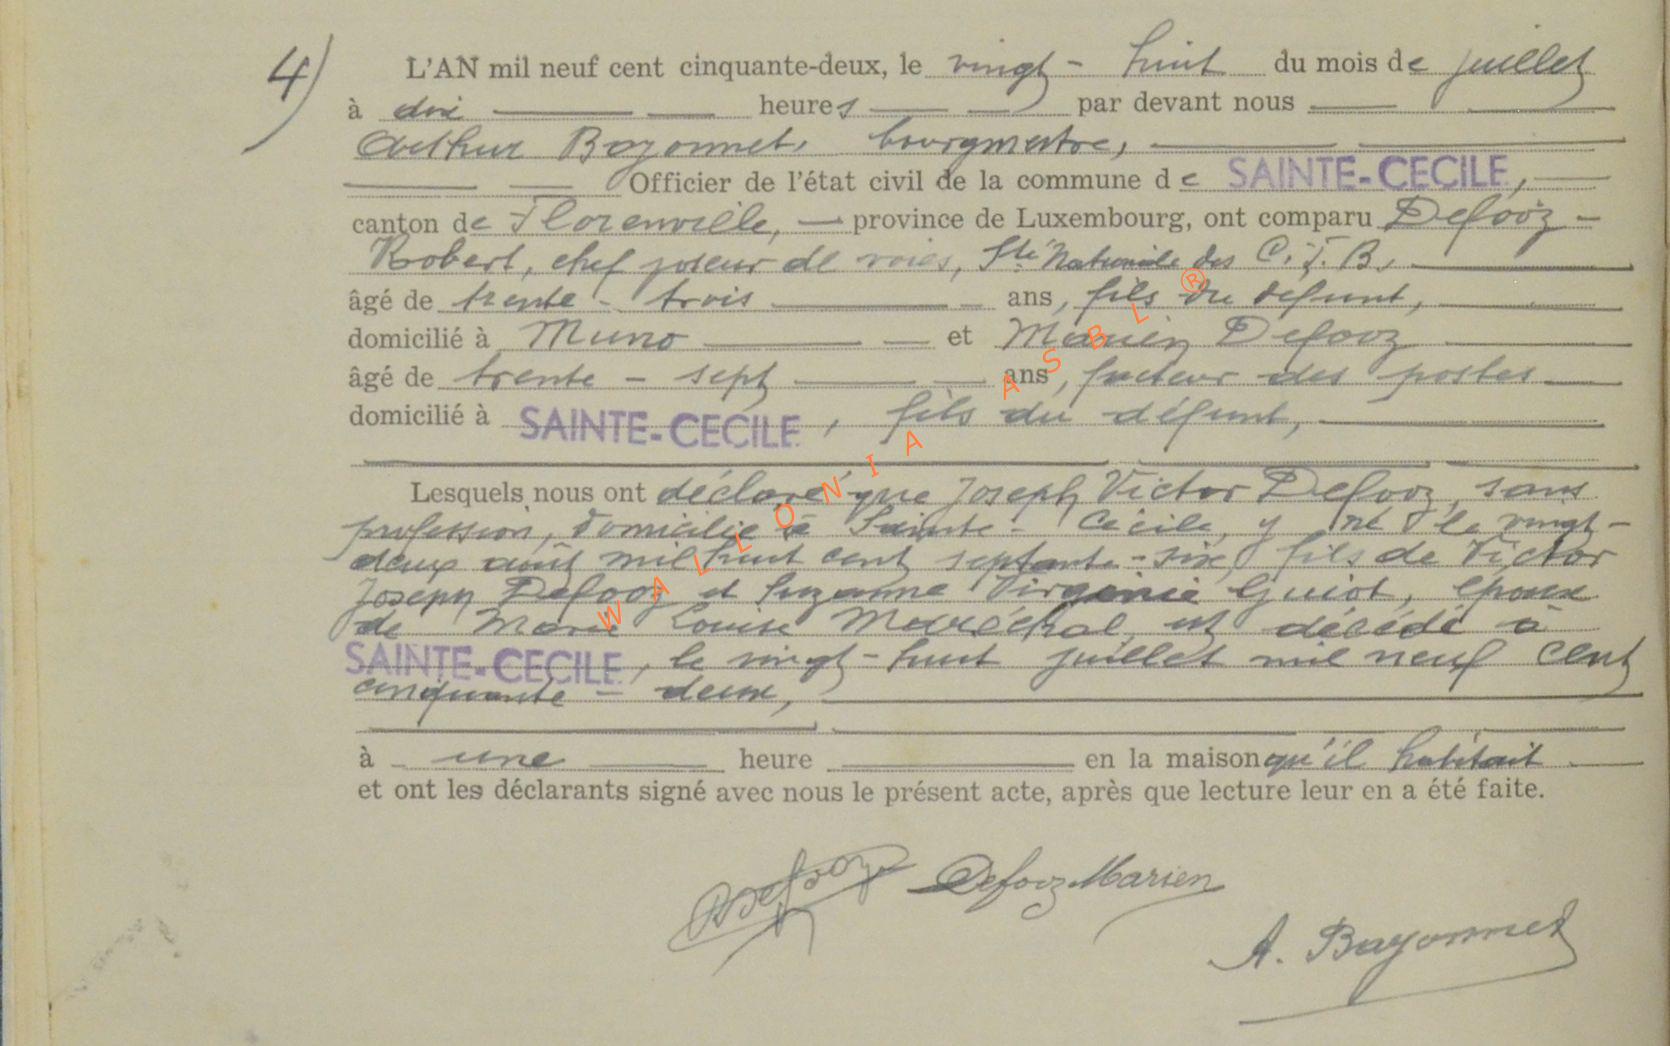 4) L'AN mil neuf cent cinquante-deux, le vingt-huit du mois de juillet
à dix heures par devant nous
Arthur Bayonnet, bourgmestre,
Officier de l'état civil de la commune de SAINTE-CECILE,
canton de Florenville, province de Luxembourg, ont comparu Defooz
Robert, chef poseur de voies, Sté Nationale des C.F.B.,
âgé de trente-trois ans, fils du défunt,
domicilié à Muno et Marien Defooz
âgé de trente-sept ans, facteur des postes
domicilié à SAINTE-CECILE, fils du défunt,
Lesquels nous ont déclaré que Joseph Victor Defooz, sans
profession, domicilié à Sainte-Cécile, y né le vingt-
deux août mil huit cent septante-six, fils de Victor
Joseph Defooz et Suzanne Virginie Guiot, époux
de Marie Louise Maréchal, est décédé à
SAINTE-CECILE, le vingt-huit juillet mil neuf cent
cinquante-deux,
à une heure en la maison qu'il habitait
et ont les déclarants signé avec nous le présent acte, après que lecture leur en a été faite.
RDefooz Defooz Marien
A. Bayonnet
WALLONIA ASBL ®